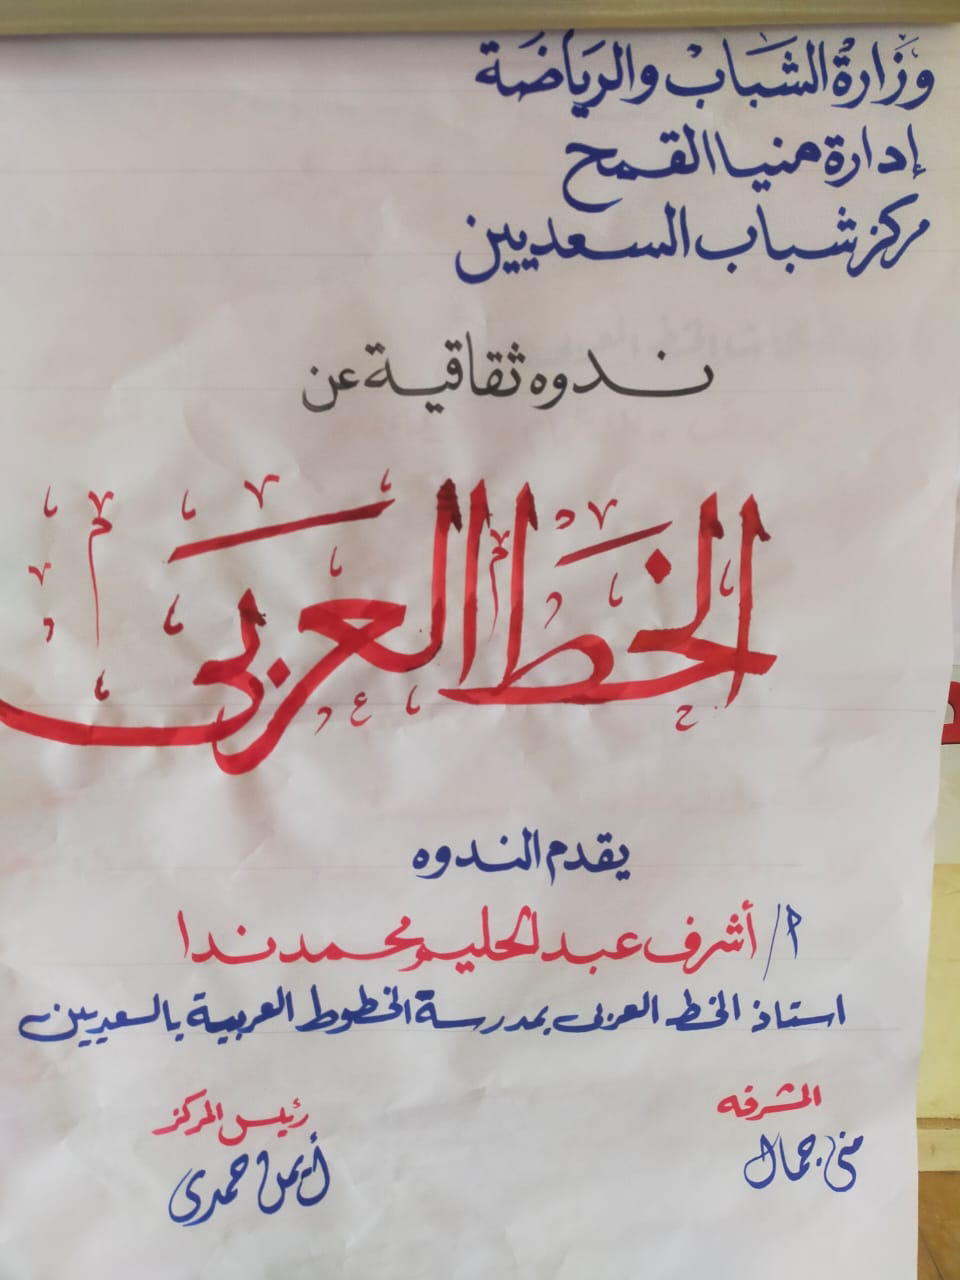 وَزَارَةُ الشَّبَابْ والرِيَاضَة
إدارة منيا القمح
مركز شباب السعديين
ندوه ثقافية عن
الخط العربى
يقدم الندوه
أ/ أشرف عبد الحليم محمد ندا
استاذ الخط العربى بمدرسة الخطوط العربية بالسعديين
المشرفه
رئيس المركز
منى جمال
أيمن حمدى